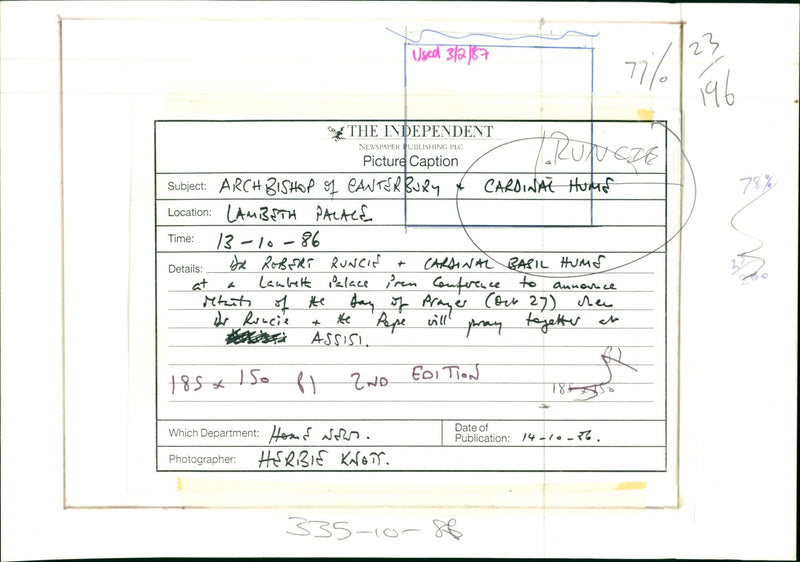 Used 3/2/87
77%
23
196
THE INDEPENDENT
NEWSPAPER PUBLISHING PLC
Picture Caption
RUNCIE
78%
Subject: ARCHBISHOP of CANTERBURY + CARDINAL HUME
Location: LAMBETH PALACE
Time: 13-10-86
Details: DR ROBERT RUNCIE + CARDINAL BASIL HUME
at a Lambeth Palace Press Conference to announce
details of the Day of Prayer (Oct 27) when
Dr Runcie + the Pope will pray together at
ASSISI.
185 x 150 f1 2ND EDITION
185 x 150
Which Department: HOME NEWS.
Date of
Publication: 14-10-86.
Photographer: HERBIE KNOTT.
335-10-86